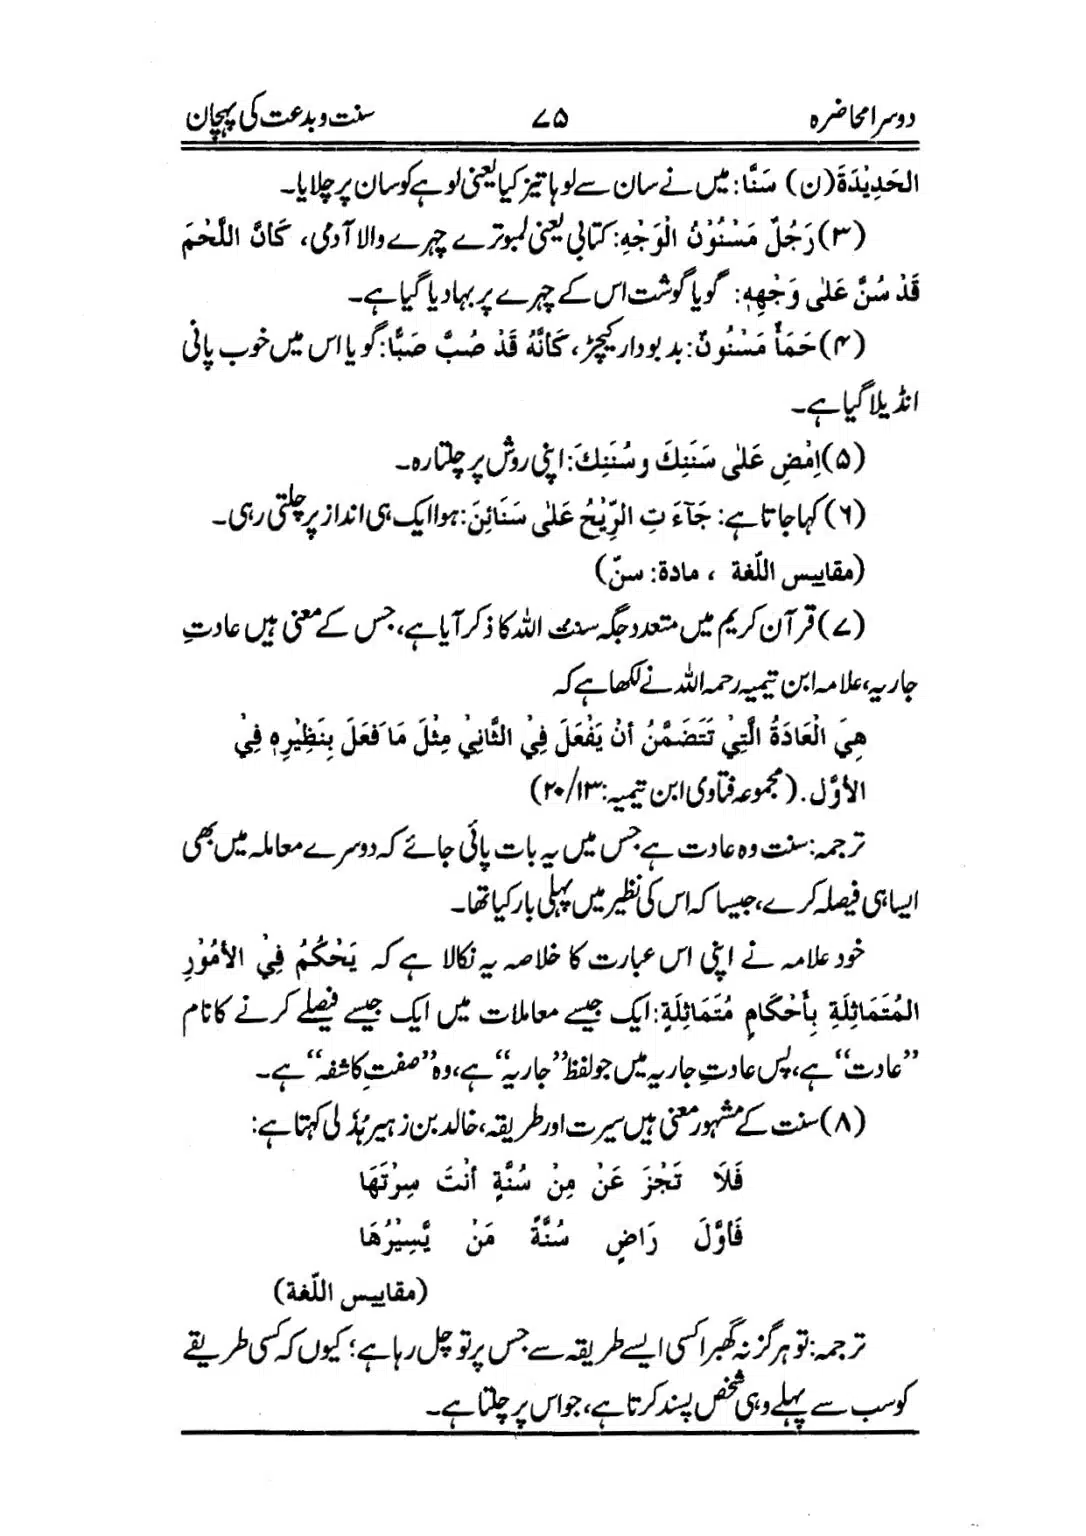 دوسرا محاضرہ ۷۵ سنت و بدعت کی پہچان
الحَدِیْدَۃَ (ن) سَنًّا: میں نے سان سے لوہا تیز کیا یعنی لوہے کو سان پر چلایا۔
(۳) رَجُلٌ مَسْنُوْنُ الْوَجْهِ: کتابی یعنی لمبوترے چہرے والا آدمی، کَانَّ اللَّحْمَ
قَدْ سُنَّ عَلٰی وَجْهِهٖ: گویا گوشت اس کے چہرے پر بہا دیا گیا ہے۔
(۴) حَمَأٌ مَسْنُونٌ: بدبودار کیچڑ، کَانَّهُ قَدْ صُبَّ صَبًّا: گویا اس میں خوب پانی
انڈیلا گیا ہے۔
(۵) اِمْضِ عَلٰی سَنَنِكَ و سُنَنِكَ: اپنی روش پر چلتا رہ۔
(۶) کہا جاتا ہے: جَآءَ تِ الرِّیْحُ عَلٰی سَنَائِنَ: ہوا ایک ہی انداز پر چلتی رہی۔
(مقاییس اللّغة ، مادة: سنّ)
(۷) قرآن کریم میں متعدد جگہ سنت اللہ کا ذکر آیا ہے، جس کے معنی ہیں عادتِ
جاریہ، علامہ ابن تیمیہ رحمہ اللہ نے لکھا ہے کہ
هِيَ الْعَادَةُ الَّتِيْ تَتَضَمَّنُ أنْ يَفْعَلَ فِيْ الثَّانِيْ مِثْلَ مَا فَعَلَ بِنَظِيْرِهٖ فِيْ
الأوَّل. (مجموعہ فتاوی ابن تیمیہ: ۲۰/۱۳)
ترجمہ: سنت وہ عادت ہے جس میں یہ بات پائی جائے کہ دوسرے معاملہ میں بھی
ایسا ہی فیصلہ کرے، جیسا کہ اس کی نظیر میں پہلی بار کیا تھا۔
خود علامہ نے اپنی اس عبارت کا خلاصہ یہ نکالا ہے کہ یَحْکُمُ فِيْ الأمُوْرِ
المُتَمَاثِلَةِ بِأَحْكَامٍ مُتَمَاثِلَةٍ: ایک جیسے معاملات میں ایک جیسے فیصلے کرنے کا نام
”عادت“ ہے، پس عادتِ جاریہ میں جو لفظ ”جاریہ“ ہے، وہ ”صفتِ کاشفہ“ ہے۔
(۸) سنت کے مشہور معنی ہیں سیرت اور طریقہ، خالد بن زہیر ہُذلی کہتا ہے:
فَلاَ تَجْزَ عَنْ مِنْ سُنَّةٍ أنْتَ سِرْتَهَا
فَأوَّلَ رَاضٍ سُنَّةً مَنْ يَّسِيْرُهَا
(مقاییس اللّغة)
ترجمہ: تو ہرگز نہ گھبرا کسی ایسے طریقہ سے جس پر تو چل رہا ہے؛ کیوں کہ کسی طریقے
کو سب سے پہلے وہی شخص پسند کرتا ہے، جو اس پر چلتا ہے۔